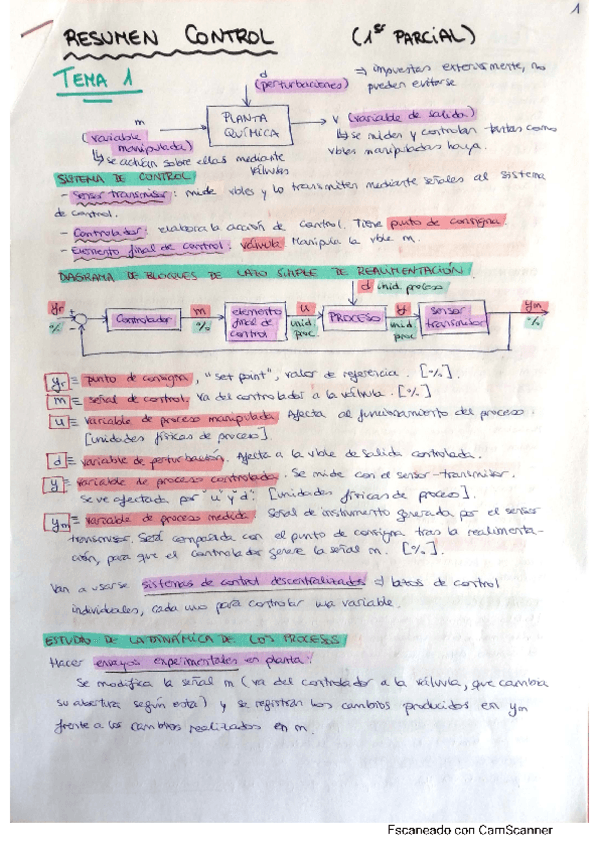 1
RESUMEN CONTROL (1er PARCIAL)
TEMA 1
d
(perturbaciones)
⇒ impuestas exteriormente, no
pueden evitarse
m
(variable
manipulada)
↳ se actúan sobre ellas mediante
válvulas
PLANTA
QUÍMICA
v (variable de salida)
↳ se miden y controlan tantas como
vbles manipuladas haya.
SISTEMA DE CONTROL
- Sensor transmisor: mide vbles y lo transmiten mediante señales al sistema
de control.
- Controlador: elabora la acción de control. Tiene punto de consigna.
- Elemento final de control: válvula. Manipula la vble m.
DIAGRAMA DE BLOQUES DE LAZO SIMPLE DE REALIMENTACIÓN
d unid. proceso
yr
%
+
-
Controlador
m
%
elemento
final de
control
u
unid.
proc.
PROCESO
y
unid.
proc
sensor
transmisor
ym
%
yr ≡ punto de consigna, "set point", valor de referencia. [%].
m ≡ señal de control. Va del controlador a la válvula. [%]
u ≡ variable de proceso manipulada. Afecta al funcionamiento del proceso.
[unidades físicas de proceso].
d ≡ variable de perturbación. Afecta a la vble de salida controlada.
y ≡ variable de proceso controlada. Se mide con el sensor-transmisor.
Se ve afectada por "u" y "d". [unidades físicas de proceso].
ym ≡ variable de proceso medida. Señal de instrumento generada por el sensor
transmisor. Será comparada con el punto de consigna tras la realimenta-
ción, para que el controlador genere la señal m. [%].
Van a usarse sistemas de control descentralizados ⇒ lazos de control
individuales, cada uno para controlar una variable.
ESTUDIO DE LA DINÁMICA DE LOS PROCESOS
Hacer ensayos experimentales en planta:
Se modifica la señal m (va del controlador a la válvula, que cambia
su abertura según esta) y se registran los cambios producidos en ym
frente a los cambios realizados en m.
Escaneado con CamScanner